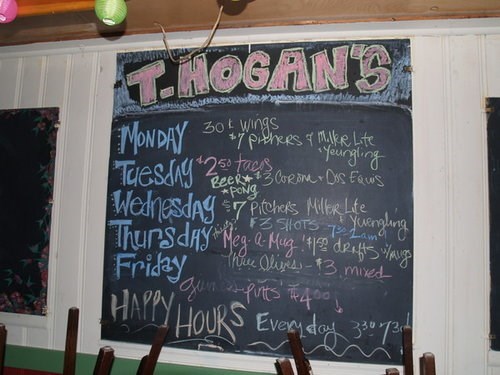 T. HOGAN'S
MONDAY 30¢ WINGS
$7 Pitchers of Miller Lite
+ Youngling
Tuesday $2.50 tacos
BEER PONG $3 Corona + Dos Equis
Wednesday $7 Pitchers Miller Lite
+ Yuengling
Thursday $3 SHOTS
Meg-A-Mug $1.50 drafts w/mugs
Friday $3 mixed
HAPPY HOURS Everyday 330 730